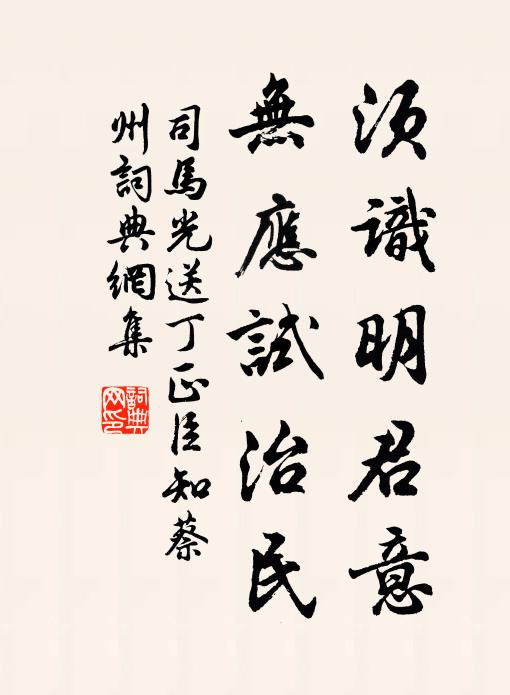 須識明君意
無應試治民
司馬光送丁正臣知蔡
州詞典網集
詞典
网印